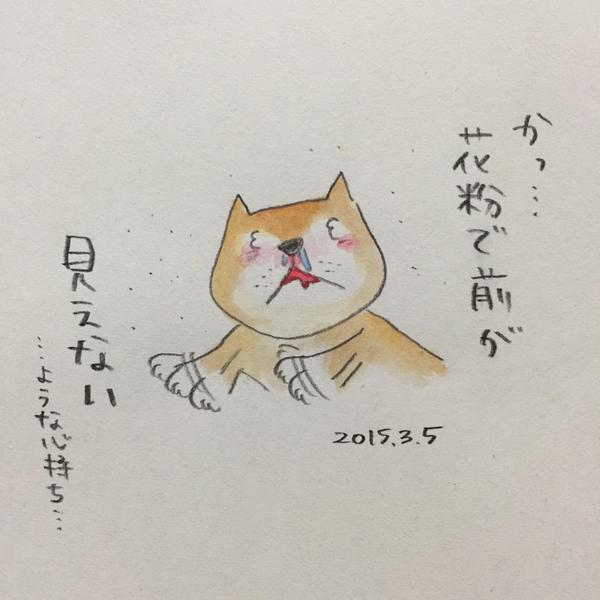 かっ…
花粉で前が
見えない
…ような心持ち…
2015.3.5